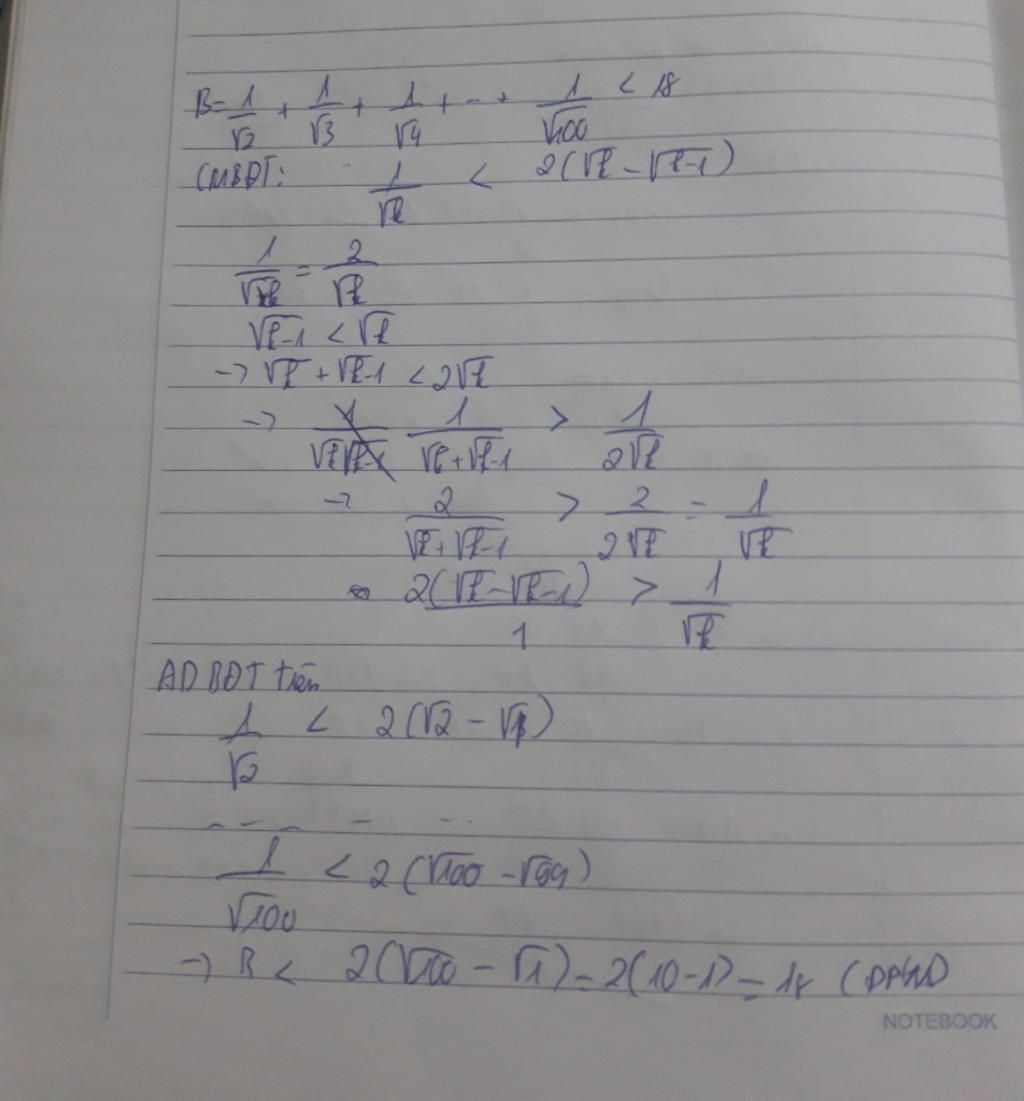 B = 1/√2 + 1/√3 + 1/√4 + ... + 1/√100 < 18
CMBĐT: 1/√k < 2(√k - √k-1)
1/√k = 2/√k
√k-1 < √k
→ √k + √k-1 < 2√k
→ 1/(√k + √k-1) > 1/(2√k)
→ 2/(√k + √k-1) > 2/(2√k) = 1/√k
2(√k - √k-1)/1 > 1/√k
AD BĐT trên
1/√2 < 2(√2 - √1)
- - - - - ..
1/√100 < 2(√100 - √99)
→ B < 2(√100 - √1) = 2(10-1) = 18 (ĐPCM)
NOTEBOOK